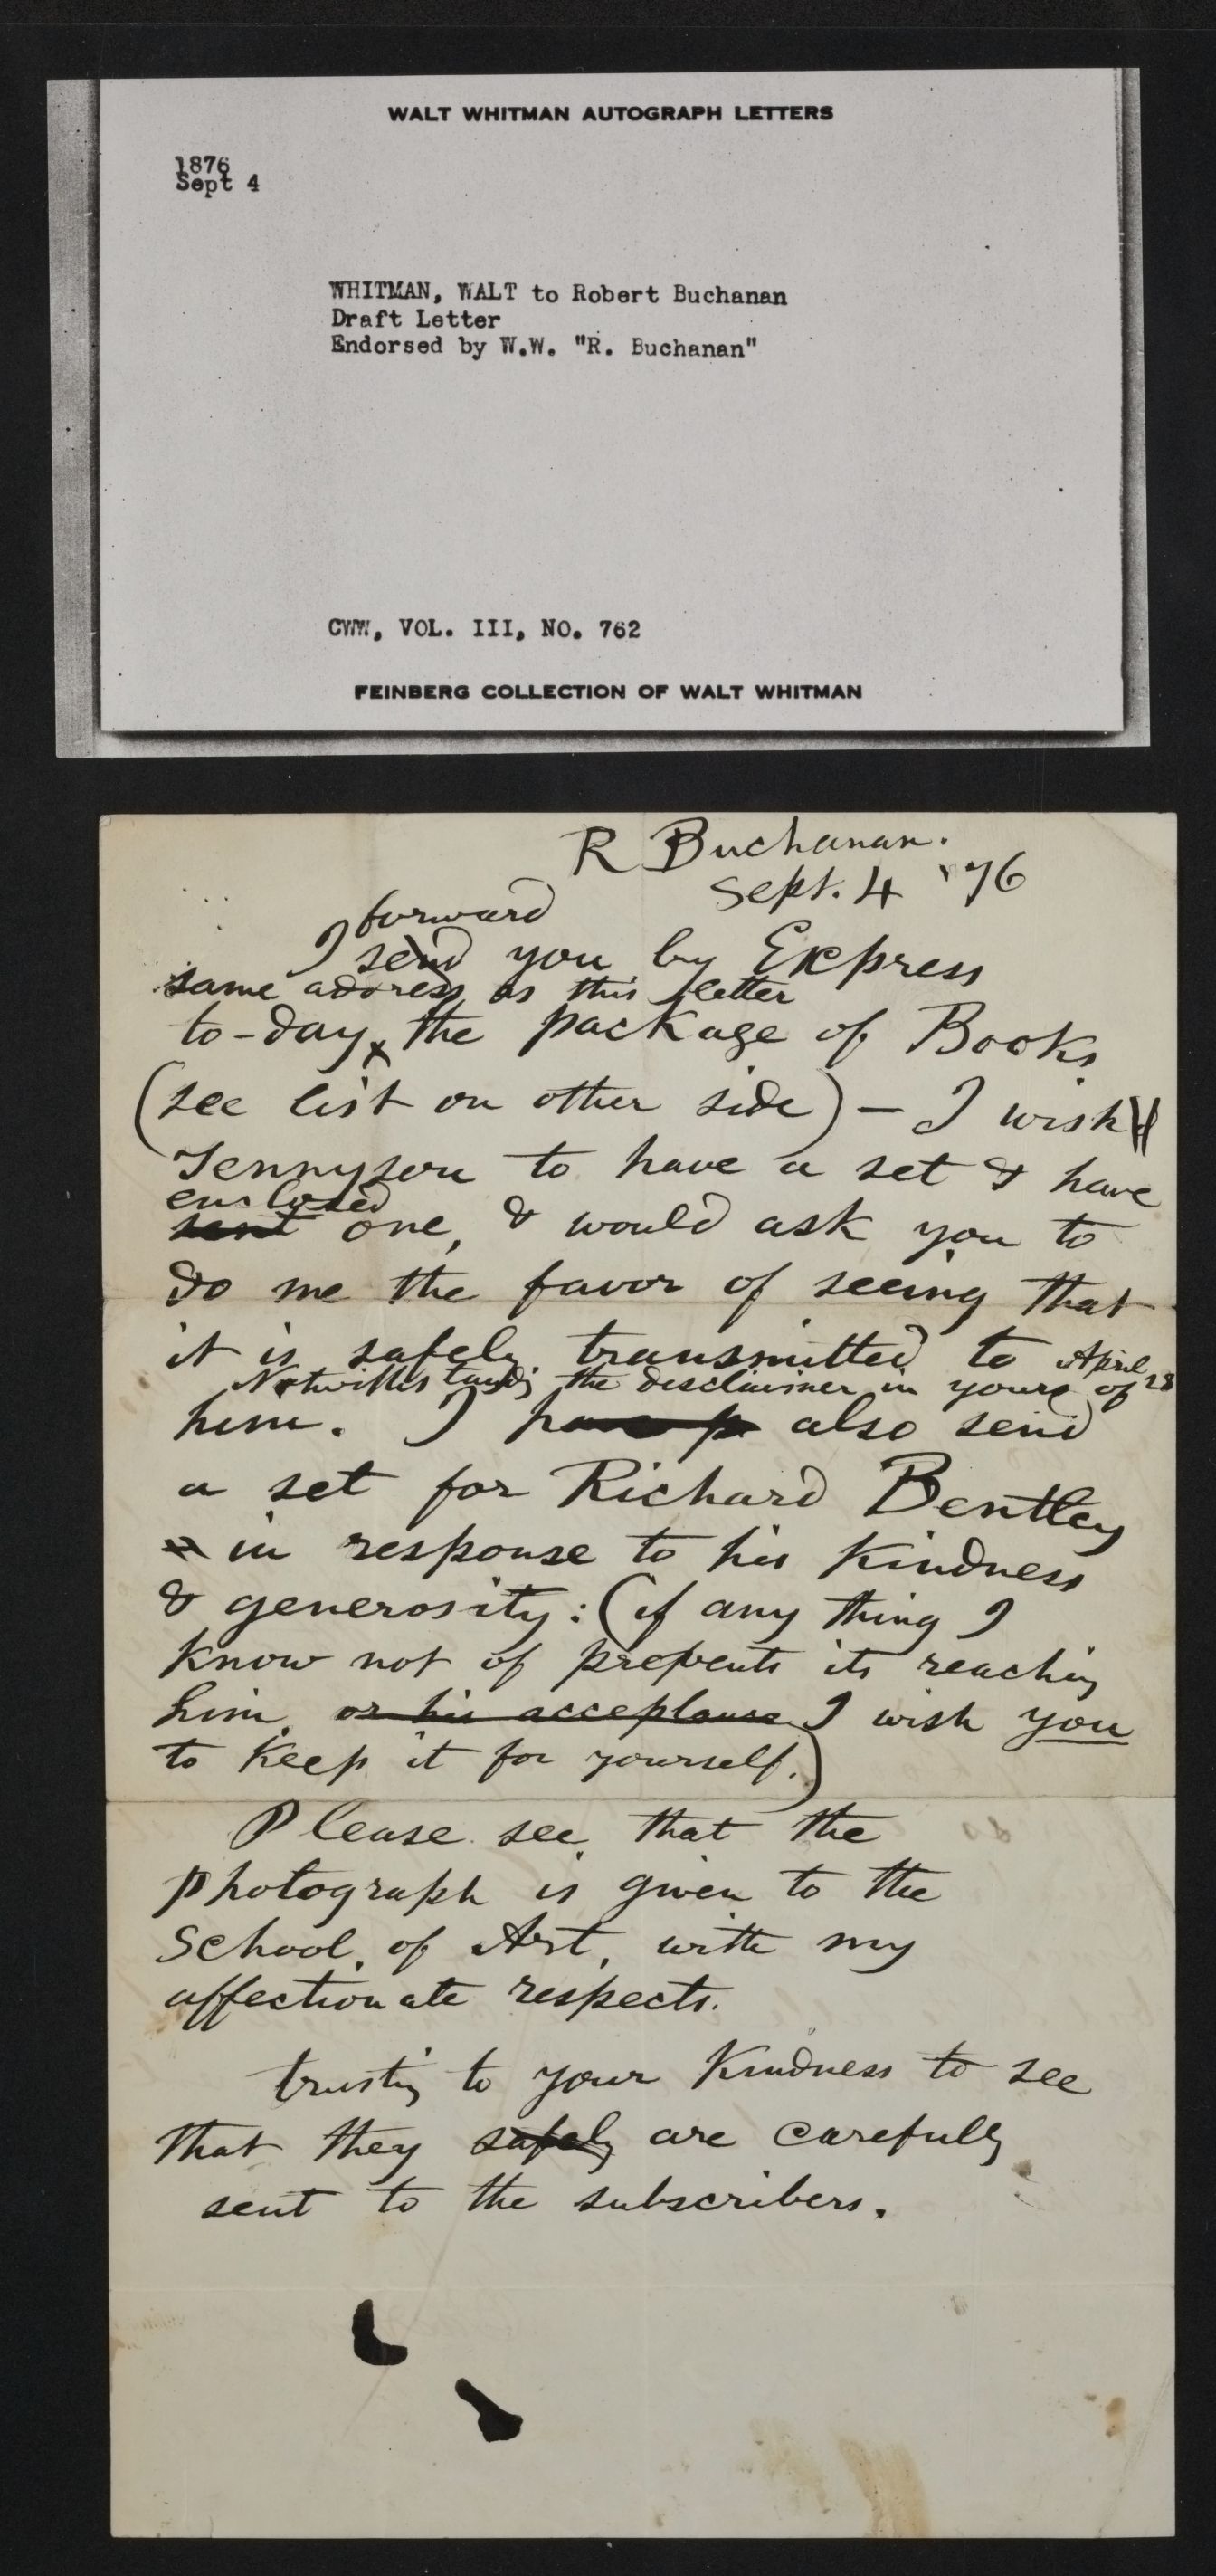 WALT WHITMAN AUTOGRAPH LETTERS
1876
Sept 4
WHITMAN, WALT to Robert Buchanan
Draft Letter
Endorsed by W.W. "R. Buchanan"
CWW, VOL. III, NO. 762
FEINBERG COLLECTION OF WALT WHITMAN
R Buchanan.
Sept. 4 '76
forward
I send you by Express
same address as this letter
to-day, the package of Books
(see list on other side) — I wish
Tennyson to have a set & have
enclosed
sent one, & would ask you to
do me the favor of seeing that
it is safely transmitted to
Notwithstanding the disclaimer in yours of April 28
him. I have p also send
a set for Richard Bentley
in response to his kindness
& generosity: (if any thing I
know not of prevents its reaching
him, or his acceptance I wish you
to keep it for yourself.)
Please see that the
photograph is given to the
School of Art, with my
affectionate respects.
trusting to your kindness to see
that they safely are carefully
sent to the subscribers.